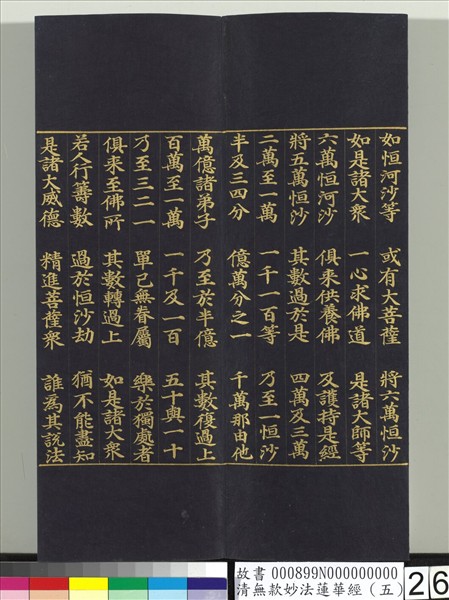 如恒河沙等　或有大菩薩　將六萬恒沙
如是諸大衆　一心求佛道　是諸大師等
六萬恒河沙　俱来供養佛　及護持是經
將五萬恒沙　其數過於是　四萬及三萬
二萬至一萬　一千一百等　乃至一恒沙
半及三四分　億萬分之一　千萬那由他
萬億諸弟子　乃至於半億　其數復過上
百萬至一萬　一千及一百　五十與一十
乃至三二一　單己無眷屬　樂於獨處者
俱来至佛所　其數轉過上　如是諸大衆
若人行籌數　過於恒沙劫　猶不能盡知
是諸大威德　精進菩薩衆　誰為其説法
故書 000899N000000000
清無款妙法蓮華經（五）
26